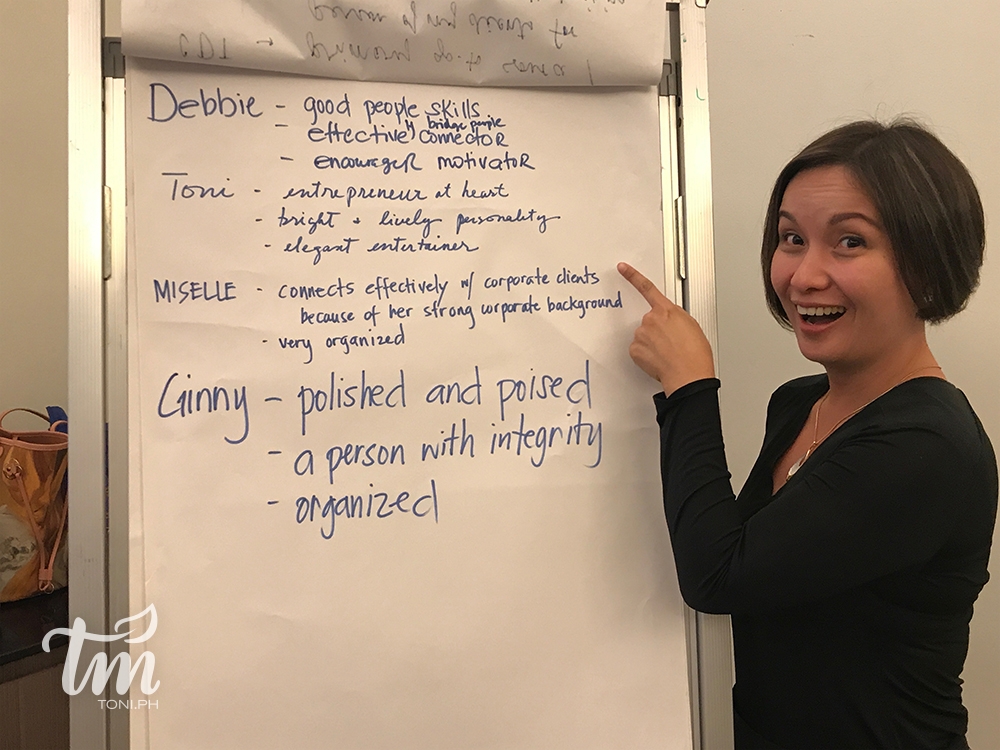 Debbie - good people skills
- effectively connector
bridge people
- encourager motivator
Toni - entrepreneur at heart
- bright & lively personality
- elegant entertainer
MISELLE - connects effectively w/ corporate clients
because of her strong corporate background
- very organized
Ginny - polished and poised
- a person with integrity
- organized
tm
TONI.PH